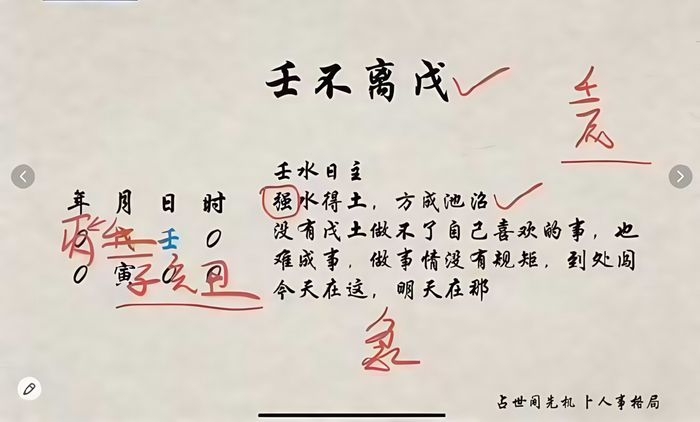 壬不离戊
壬水日主
年 月 日 时
强水得土，方成池沼
0 壬 0
没有戊土做不了自己喜欢的事，也
难成事，做事情没有规矩，到处闯
0 寅 0 0
今天在这，明天在那
子 丑
占世间先机 卜人事格局